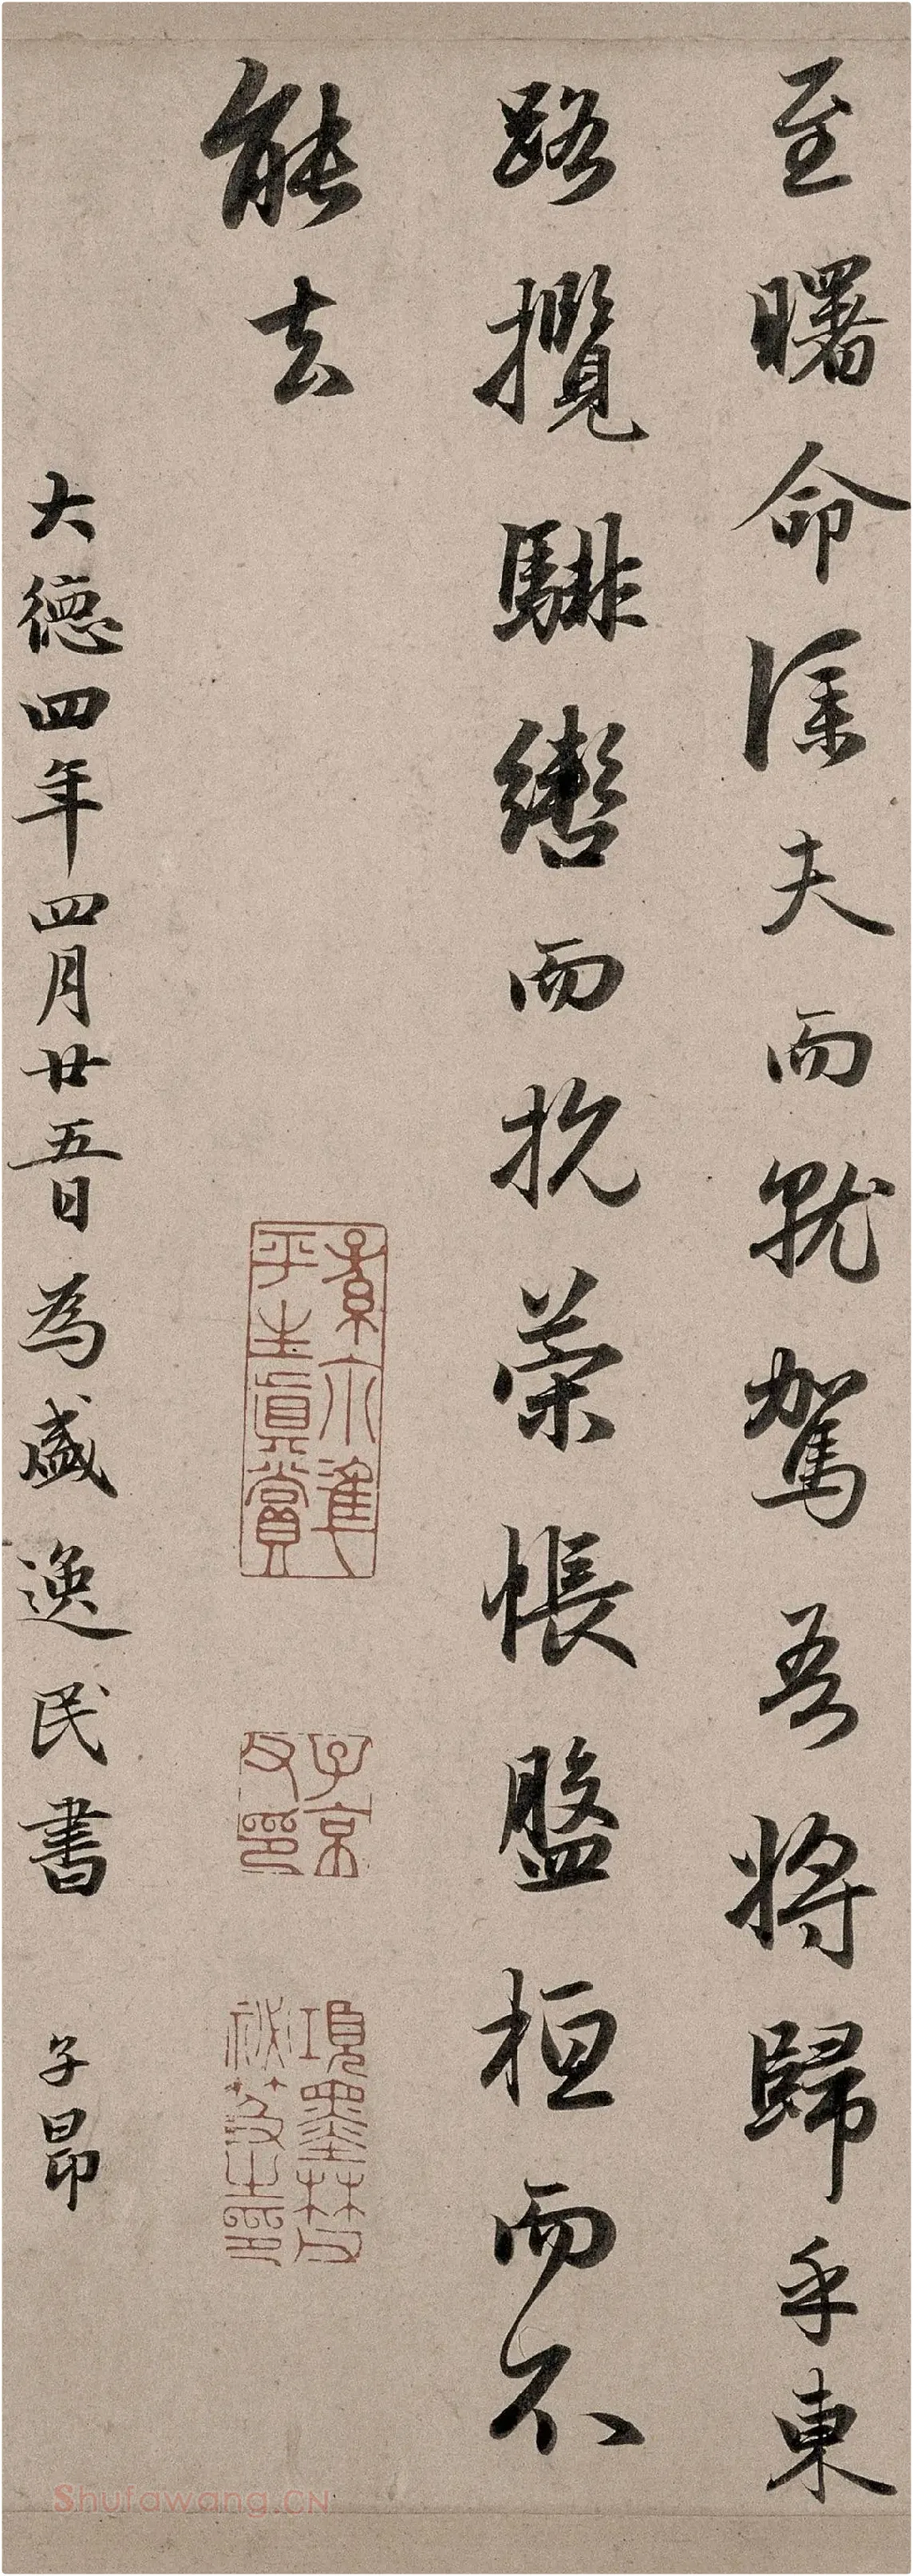 至曙命僕夫而就駕吾將歸乎東
路攬騑轡而抗策悵盤桓而不
能去
大德四年四月廿五日為盛逸民書 子昂
平生真賞
子京父印
項墨林父祕笈之印
Shufawang.CN